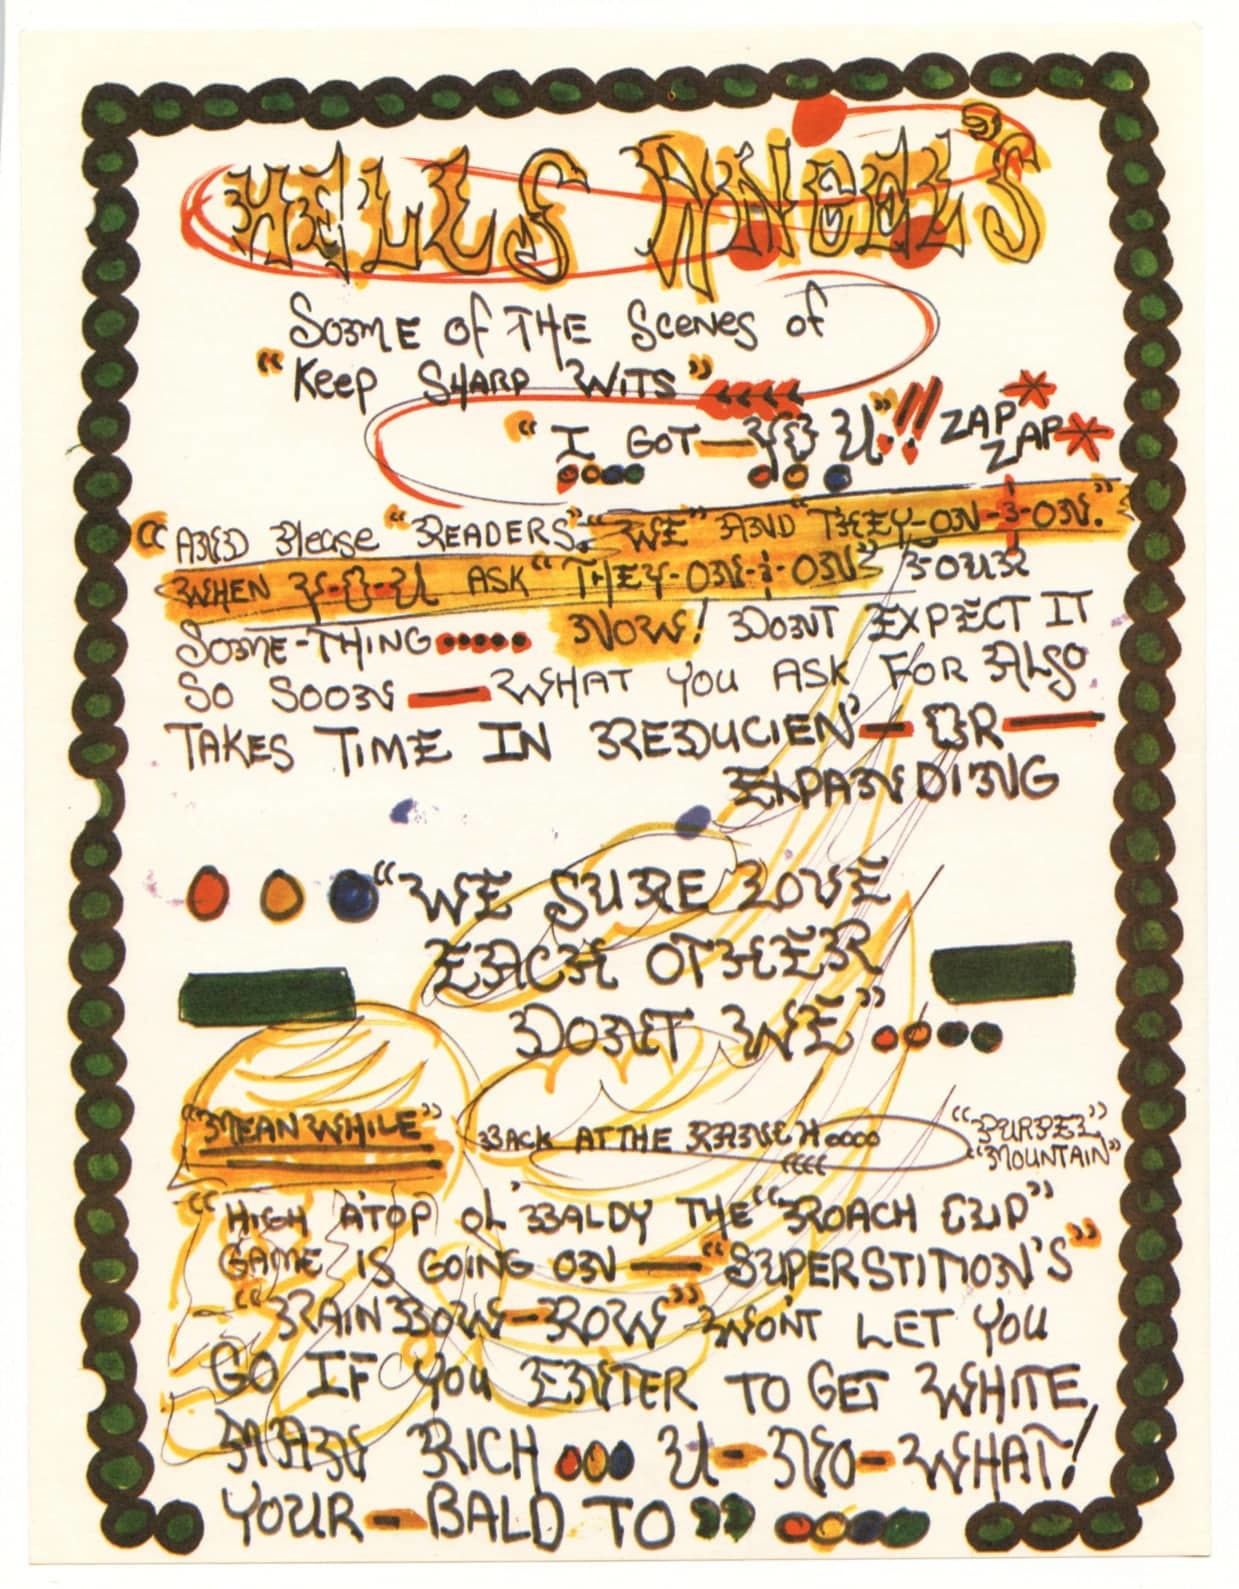 HELLS ANGEL'S
SOME Of THE Scenes of
"Keep SHARP WITS"
"I GOT—YOU"!! ZAP
ZAP
"AND Please "READERS". "WE" AND "THEY-ON-&-ON."
WHEN Y-O-U ASK "THEY-ON-&-ON" FOUR
SOME-THING..... NOW! DONT EXPECT IT
SO SOON — WHAT YOU ASK FOR ALSO
TAKES TIME IN REDUCIEN'— OR —
EXPANDING
"WE SURE LOVE
EACH OTHER
DONT WE"....
"MEANWHILE" BACK AT THE RANCH oooo "PURPEL"
"MOUNTAIN"
"HIGH A'TOP OL' BALDY THE "ROACH CLIP"
GAME IS GOING ON — "SUPERSTITION'S"
"RAINBOW-ROW" WON'T LET YOU
GO IF YOU ENTER TO GET WHITE
MAN RICH ... U-NO-WHAT!
YOUR-BALD TO